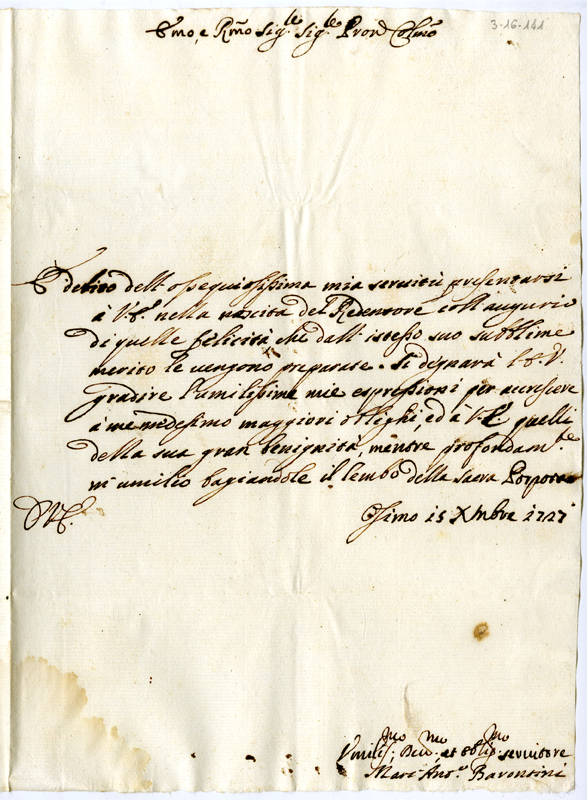 Emo, e Rmo Sig.le Sig.le Pron Colmo
3-16-141
È debito dell'ossequiosissima mia servitù presentarsi
à V.E. nella nascita del Redentore coll'augurio
di quelle felicità che dall'istesso suo sublime
merito le vengono preparate. Si degnarà l'E.V.
gradire l'umilissime mie espressioni per accrescere
à me medesimo maggiori oblighi, ed à V.E. quelli
della sua gran benignità, mentre profondam.te
m'umilio bagiandole il lembo della sacra Porpora
D.V.E.
Osimo 15 Xmbre 1727
Umiliss:mo Devo:mo et Obligmo servitore
Marc Ant.o Barontini